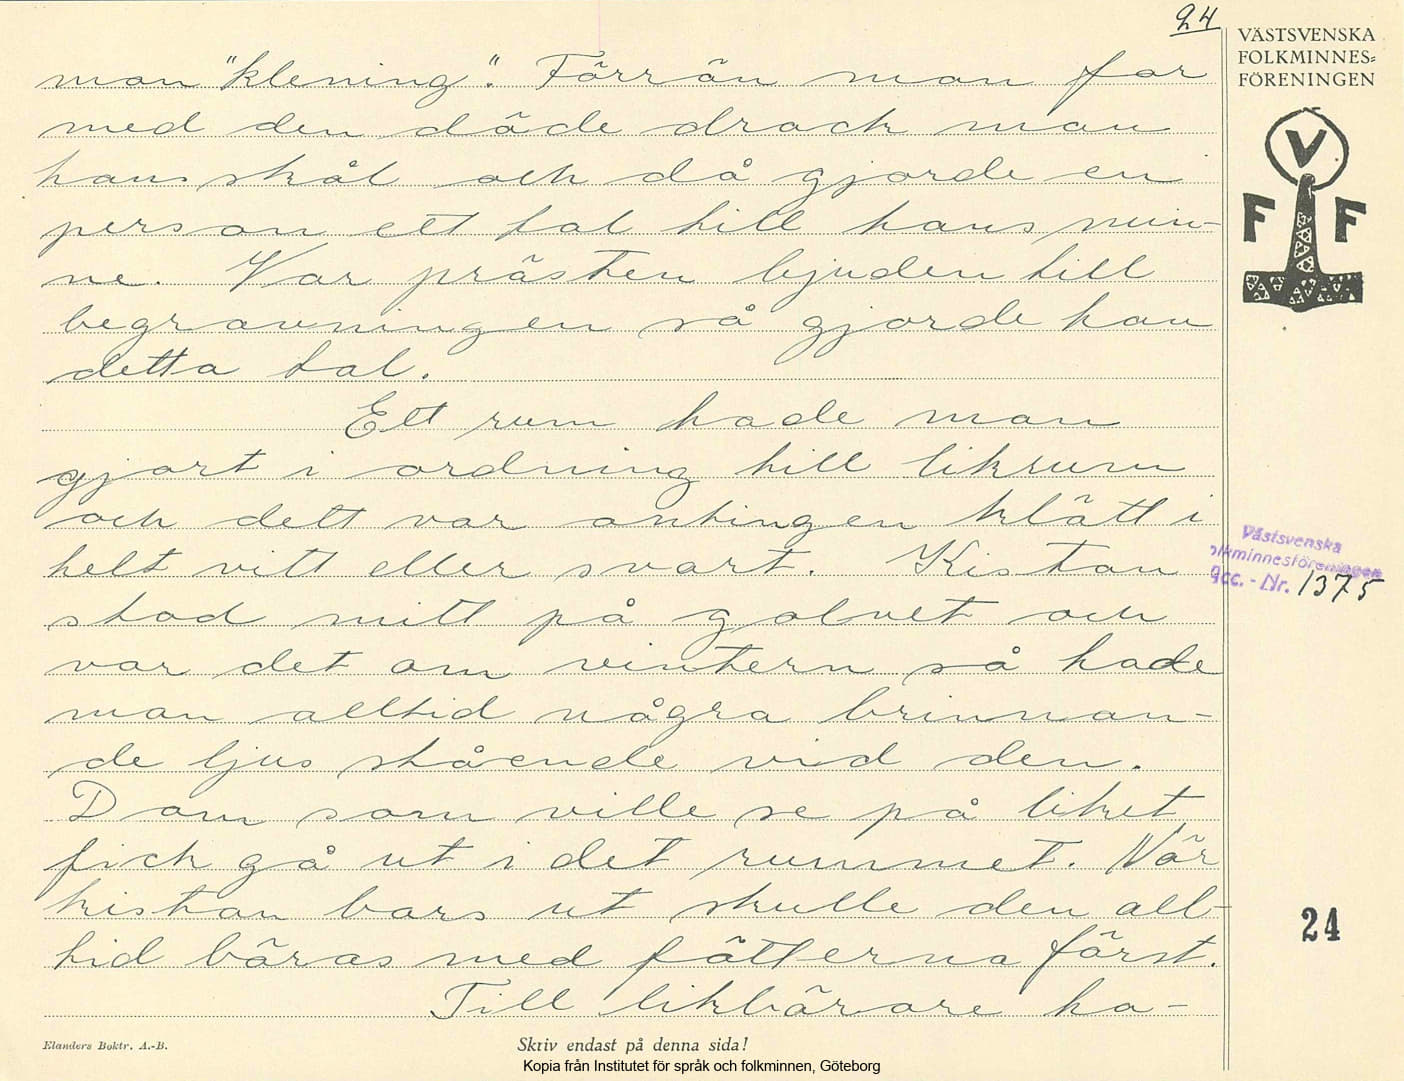 24
VÄSTSVENSKA
FOLKMINNES=
FÖRENINGEN
V
F F
man "klening". Förrän man for
med den döde drack man
hans skål och då gjorde en
person ett tal till hans min-
ne. Var prästen bjuden till
begravningen så gjorde han
detta tal.
Ett rum hade man
gjort i ordning till likrum
och dett var antingen klätt i
helt vitt eller svart. Kistan
stod mitt på golvet och
var det om vintern så hade
man alltid några brinnan-
de ljus stående vid den.
Dom som ville se på liket
fick gå ut i det rummet. När
kistan bars ut skulle den all-
tid bäras med fötterna först.
Till likbärare ha-
Västsvenska
olkminnesföreningen
Acc. - Nr. 1375
24
Elanders Boktr. A.-B.
Skriv endast på denna sida!
Kopia från Institutet för språk och folkminnen, Göteborg